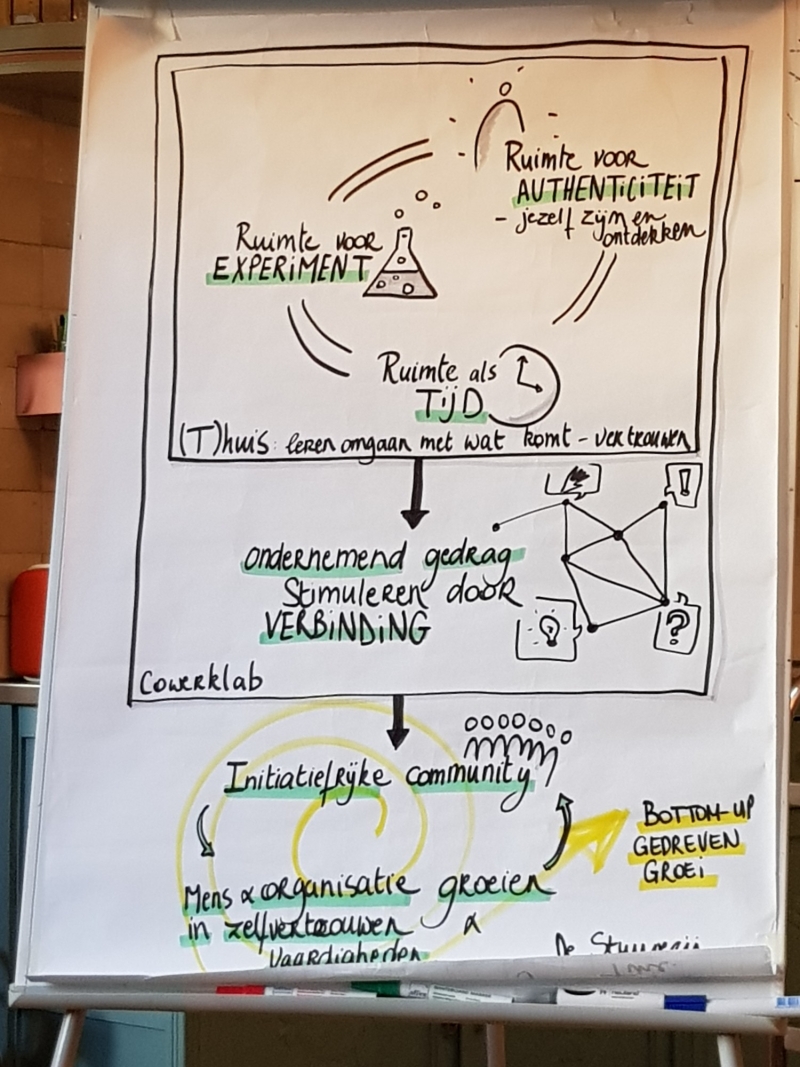 Ruimte voor
AUTHENTICITEIT
- jezelf zijn en
ontdekken
Ruimte voor
EXPERIMENT
Ruimte als
TIJD
(T)huis: leren omgaan met wat komt - vertrouwen
!
ondernemend gedrag
Stimuleren door
VERBINDING
?
Cowerklab
Initiatiefrijke community
BOTTOM-UP
GEDREVEN
GROEI
Mens & organisatie groeien
in zelfvertrouwen &
Vaardigheden
De